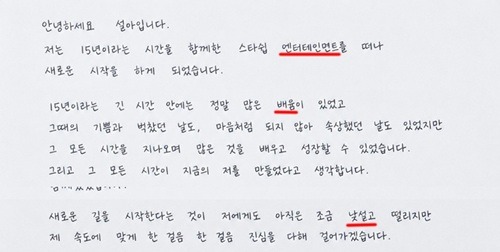 안녕하세요 설아입니다.
저는 15년이라는 시간을 함께한 스타쉽 엔터테인먼트를 떠나
새로운 시작을 하게 되었습니다.
15년이라는 긴 시간 안에는 정말 많은 배움이 있었고
그때의 기쁨과 벅찼던 날도, 마음처럼 되지 않아 속상했던 날도 있었지만
그 모든 시간을 지나오며 많은 것을 배우고 성장할 수 있었습니다.
그리고 그 모든 시간이 지금의 저를 만들었다고 생각합니다.
새로운 길을 시작한다는 것이 저에게도 아직은 조금 낯설고 떨리지만
제 속도에 맞게 한 걸음 한 걸음 진심을 다해 걸어가겠습니다.